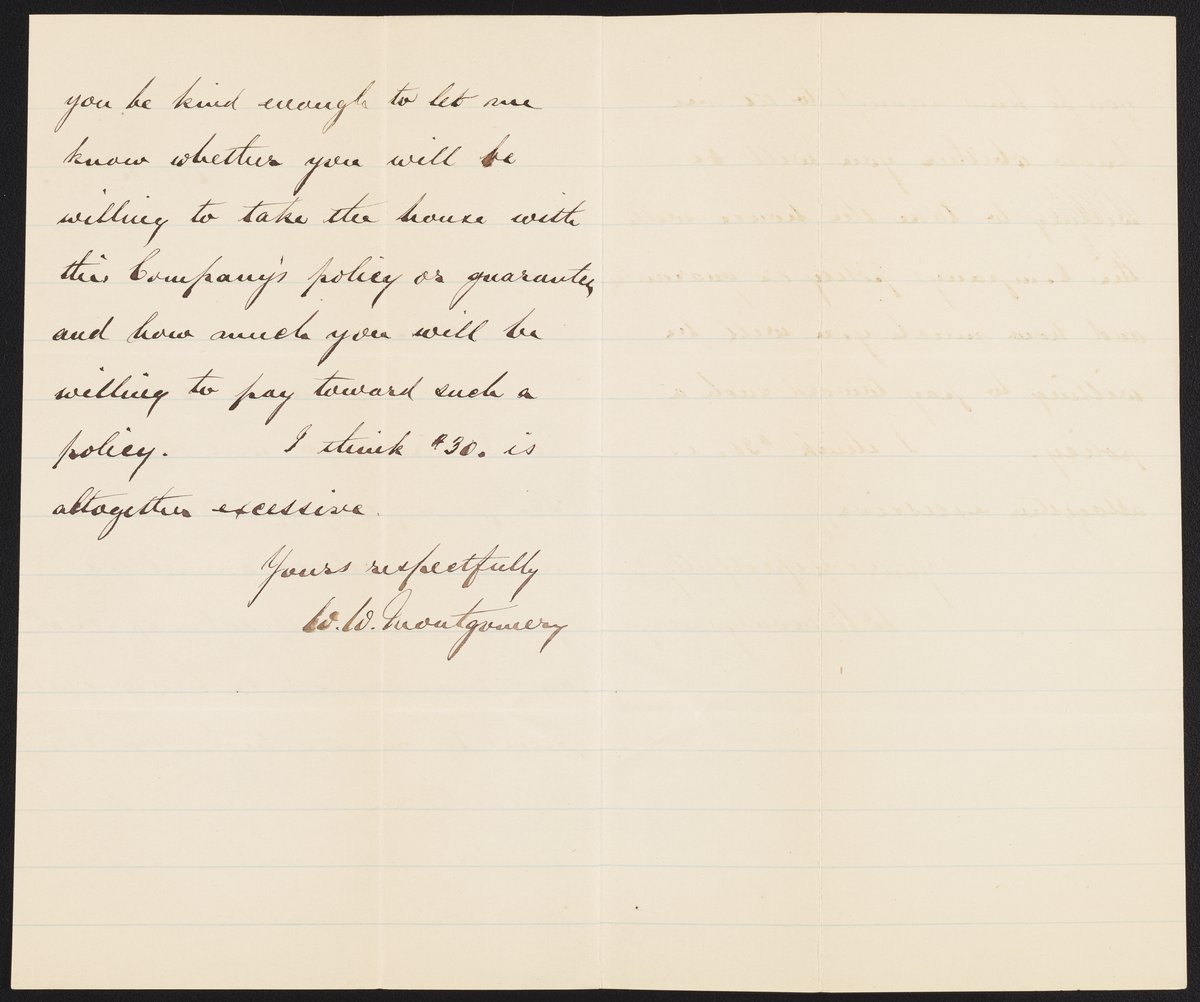 you be kind enough to let me
know whether you will be
willing to take the house with
this Company's policy or guarantee,
and how much you will be
willing to pay toward such a
policy. I think $30. is
altogether excessive.
Yours respectfully
W. W. Montgomery